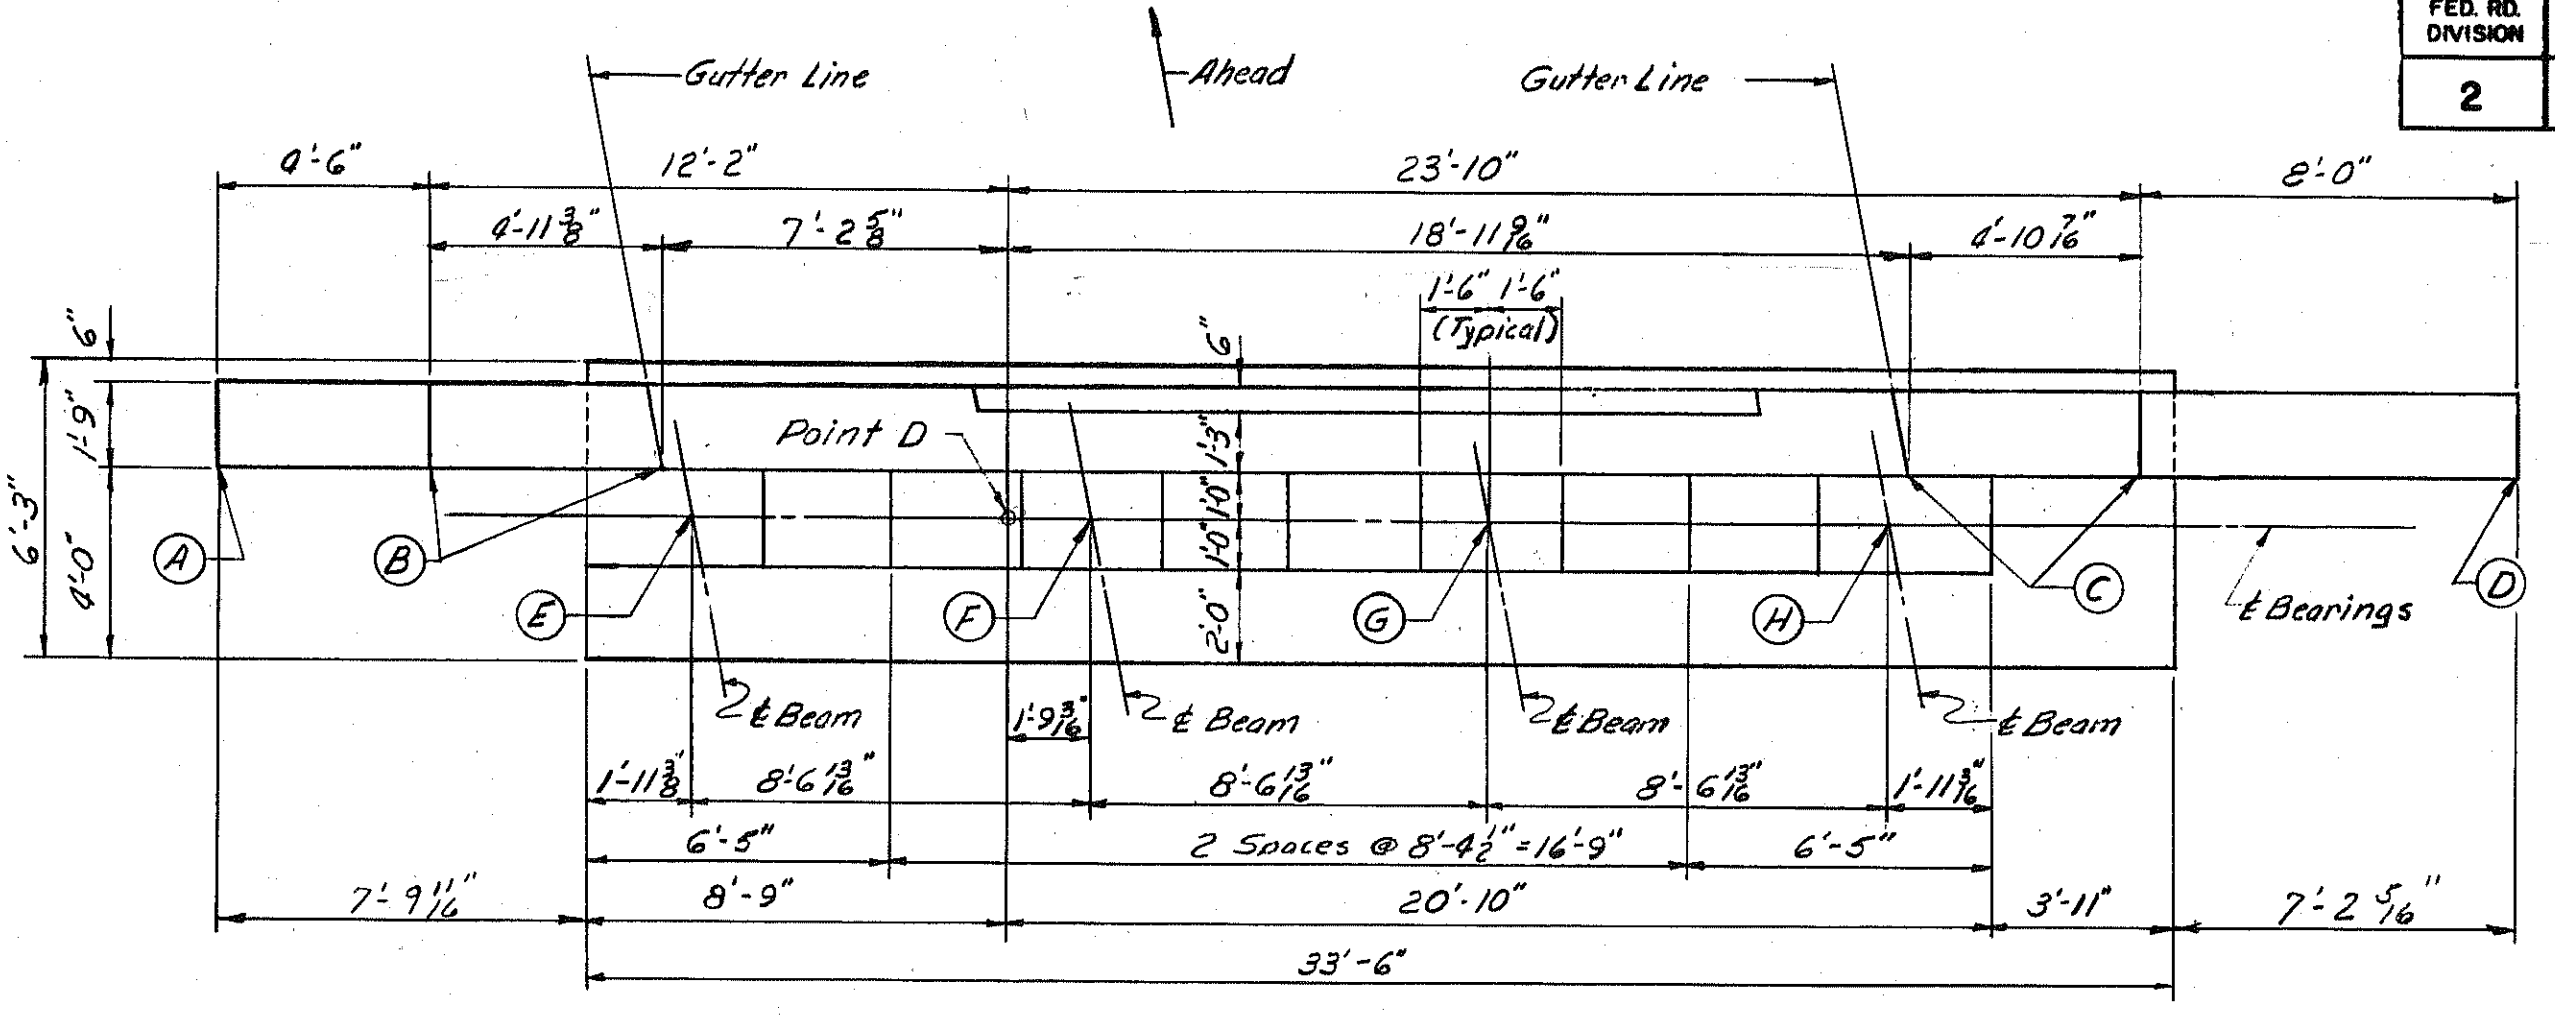 FED. RD.
DIVISION
2
Gutter Line
Ahead
Gutter Line
4'-6"
12'-2"
23'-10"
8'-0"
4'-11 3/8"
7'-2 5/8"
18'-11 9/16"
4'-10 7/16"
1'-6" 1'-6"
(Typical)
6"
6"
1'-9"
6'-3"
4'-0"
Point D
1'-3"
1'-0"
1'-0"
2'-0"
A
B
E
F
G
H
C
D
℄ Bearings
℄ Beam
℄ Beam
℄ Beam
℄ Beam
1'-9 3/16"
1'-11 3/8"
8'-6 13/16"
8'-6 13/16"
8'-6 13/16"
1'-11 3/16"
6'-5"
2 Spaces @ 8'-4 1/2" = 16'-9"
6'-5"
7'-9 11/16"
8'-9"
20'-10"
3'-11"
7'-2 5/16"
33'-6"